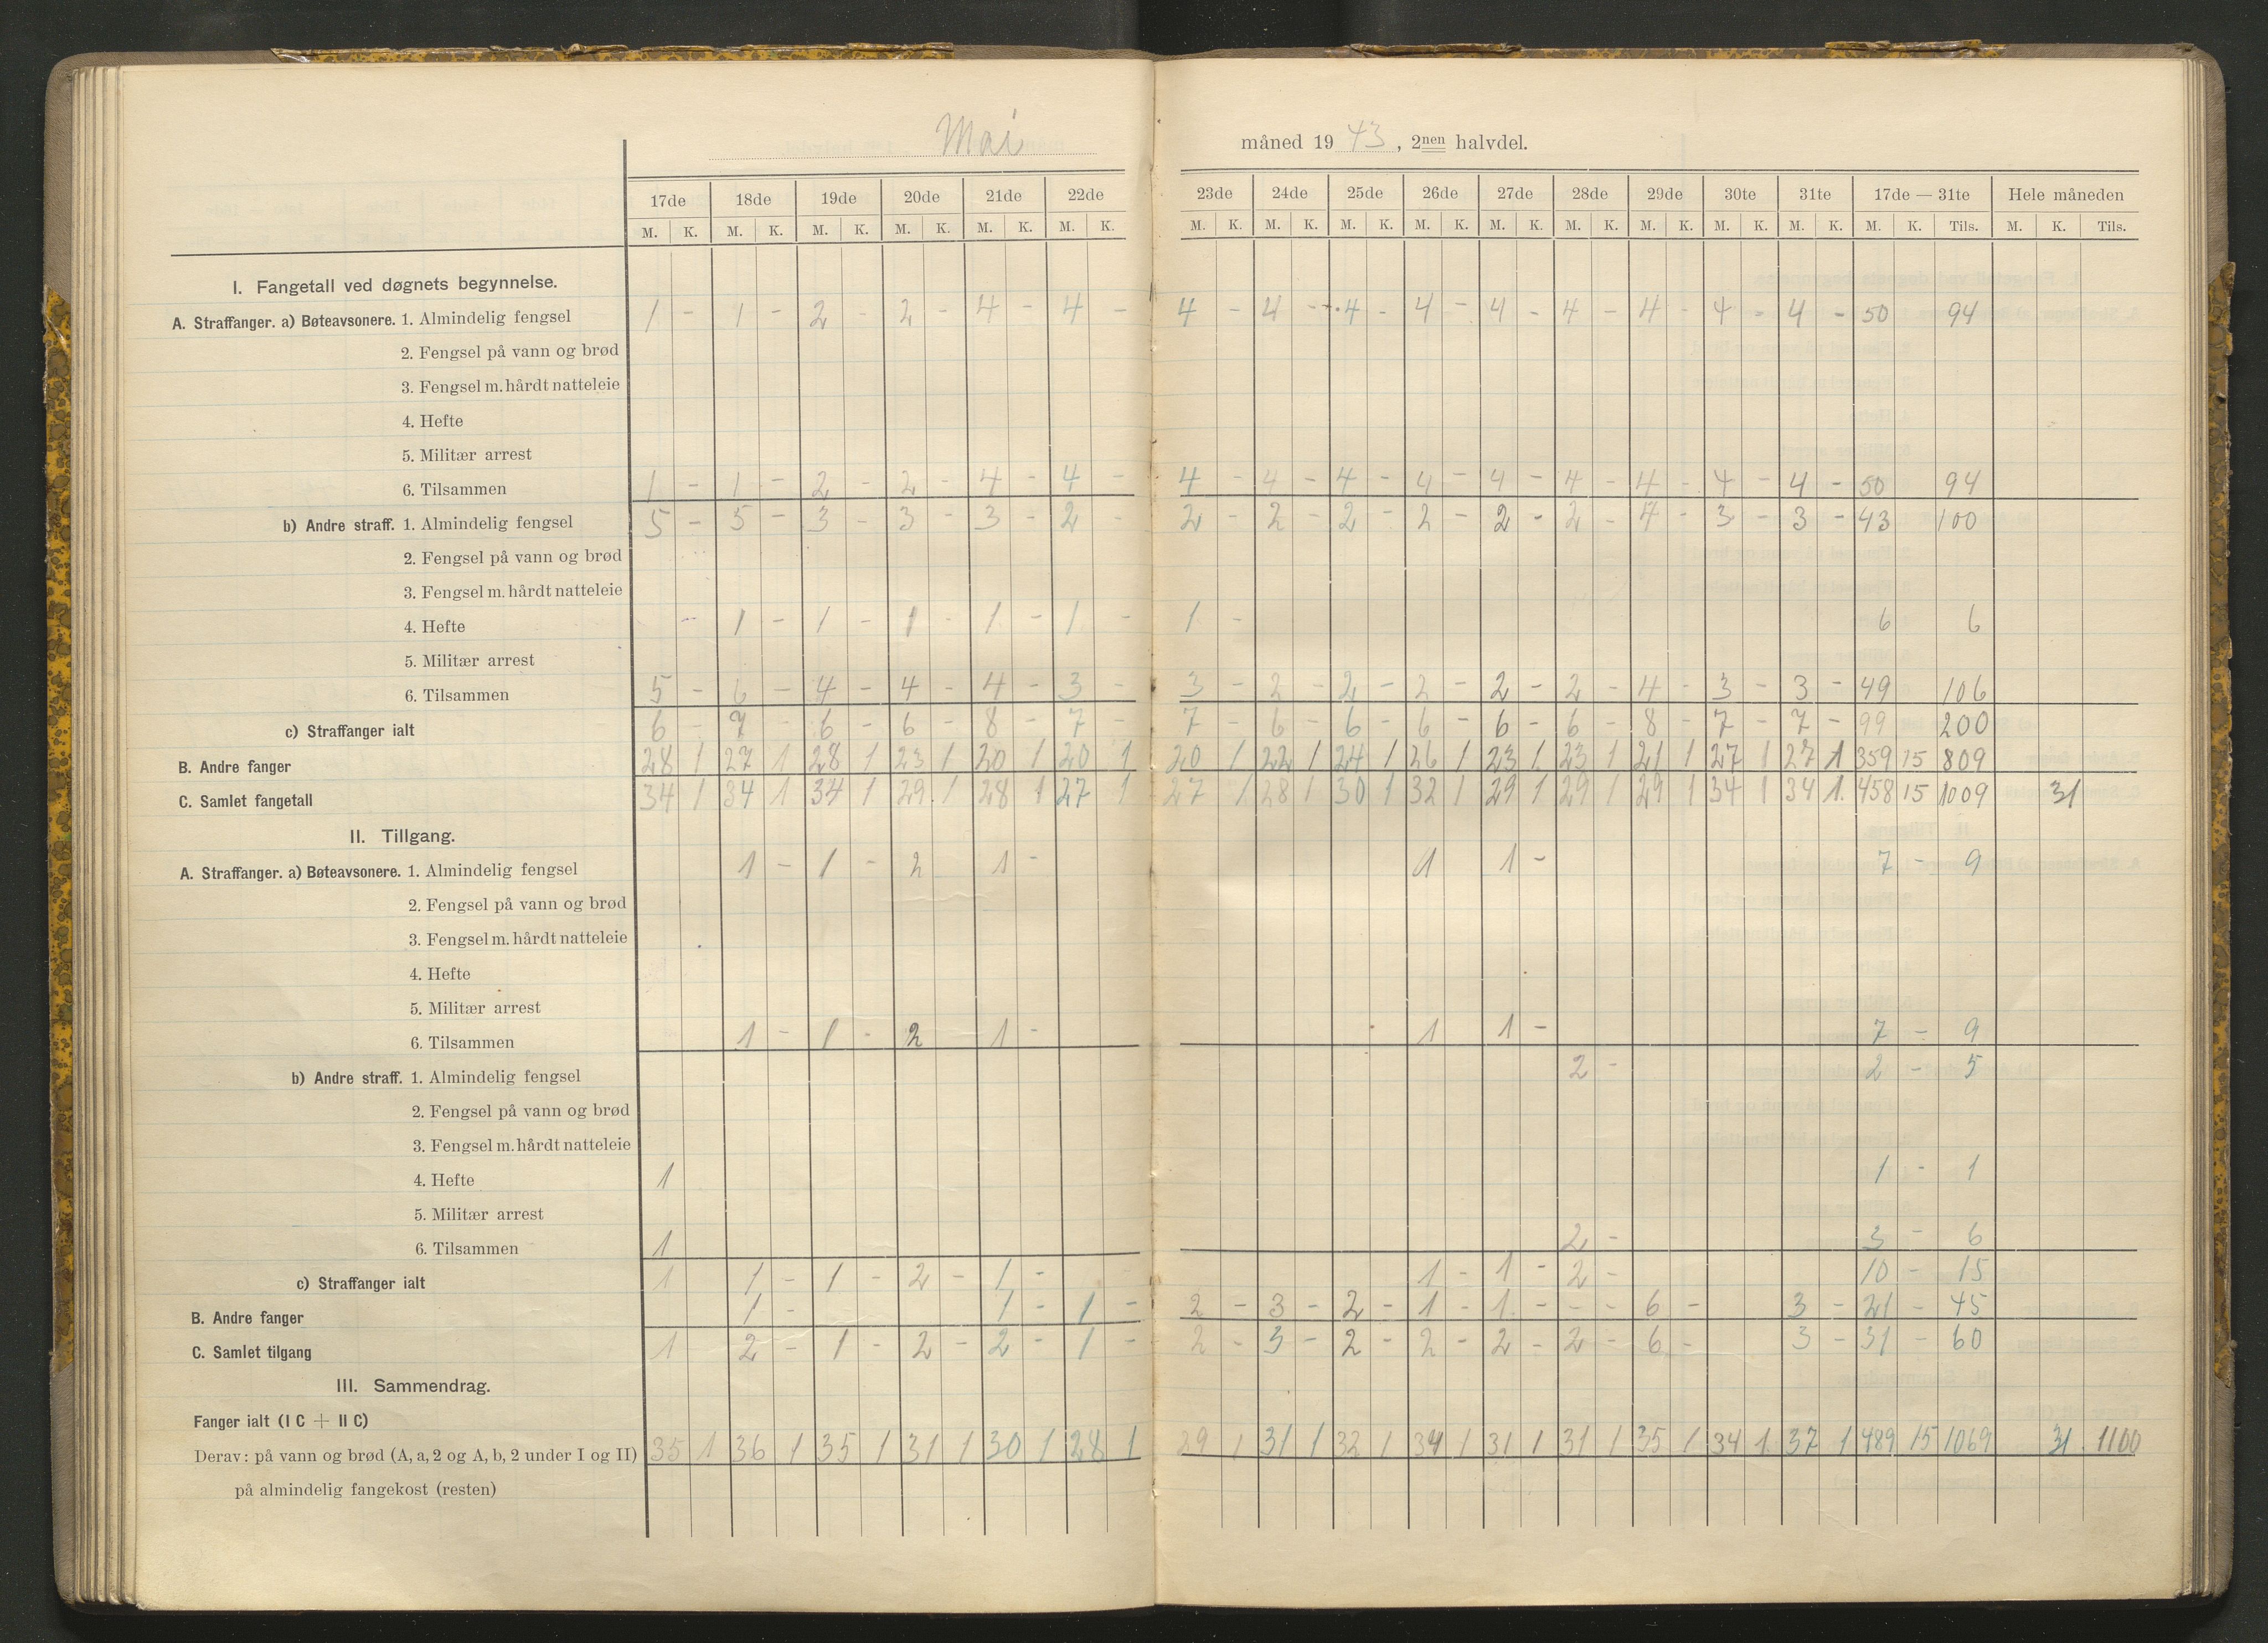 Mai måned 1943, 2nen halvdel.
17de 18de 19de 20de 21de 22de 23de 24de 25de 26de 27de 28de 29de 30te 31te 17de — 31te Hele måneden
M. K. M. K. M. K. M. K. M. K. M. K. M. K. M. K. M. K. M. K. M. K. M. K. M. K. M. K. M. K. M. K. Tils. M. K. Tils.
I. Fangetall ved døgnets begynnelse.
A. Straffanger. a) Bøteavsonere. 1. Almindelig fengsel 1 - 1 - 2 - 2 - 4 - 4 - 4 - 4 - 4 - 4 - 4 - 4 - 4 - 4 - 4 - 50 94
2. Fengsel på vann og brød
3. Fengsel m. hårdt natteleie
4. Hefte
5. Militær arrest
6. Tilsammen 1 - 1 - 2 - 2 - 4 - 4 - 4 - 4 - 4 - 4 - 4 - 4 - 4 - 4 - 4 - 50 94
b) Andre straff. 1. Almindelig fengsel 5 - 5 - 3 - 3 - 3 - 2 - 2 - 2 - 2 - 2 - 2 - 2 - 4 - 3 - 3 - 43 100
2. Fengsel på vann og brød
3. Fengsel m. hårdt natteleie
4. Hefte - 1 - 1 - 1 - 1 - 1 - 1 - 6 6
5. Militær arrest
6. Tilsammen 5 - 6 - 4 - 4 - 4 - 3 - 3 - 2 - 2 - 2 - 2 - 2 - 4 - 3 - 3 - 49 106
c) Straffanger ialt 6 - 7 - 6 - 6 - 8 - 7 - 7 - 6 - 6 - 6 - 6 - 6 - 8 - 7 - 7 - 99 200
B. Andre fanger 28 1 27 1 28 1 23 1 20 1 20 1 20 1 22 1 24 1 26 1 23 1 23 1 21 1 27 1 27 1 359 15 809
C. Samlet fangetall 34 1 34 1 34 1 29 1 28 1 27 1 27 1 28 1 30 1 32 1 29 1 29 1 29 1 34 1 34 1 458 15 1009 31
II. Tillgang.
A. Straffanger. a) Bøteavsonere. 1. Almindelig fengsel 1 - 1 - 2 1 - 1 1 - 7 - 9
2. Fengsel på vann og brød
3. Fengsel m. hårdt natteleie
4. Hefte
5. Militær arrest
6. Tilsammen 1 - 1 - 2 1 - 1 1 - 7 - 9
b) Andre straff. 1. Almindelig fengsel 2 - 2 - 5
2. Fengsel på vann og brød
3. Fengsel m. hårdt natteleie
4. Hefte 1 1 - 1
5. Militær arrest
6. Tilsammen 1 2 - 3 - 6
c) Straffanger ialt 1 1 - 1 - 2 - 1 - 1 - 1 - 2 - 10 - 15
B. Andre fanger 1 - 1 - 1 - 2 - 3 - 2 - 1 - 1 - - - 6 - 3 - 21 - 45
C. Samlet tilgang 1 2 - 1 - 2 - 2 - 1 - 2 - 3 - 2 - 2 - 2 - 2 - 6 - 3 - 31 - 60
III. Sammendrag.
Fanger ialt (I C + II C)
Derav: på vann og brød (A, a, 2 og A, b, 2 under I og II) 35 1 36 1 35 1 31 1 30 1 28 1 29 1 31 1 32 1 34 1 31 1 31 1 35 1 34 1 37 1 489 15 1069 31 1100
på almindelig fangekost (resten)